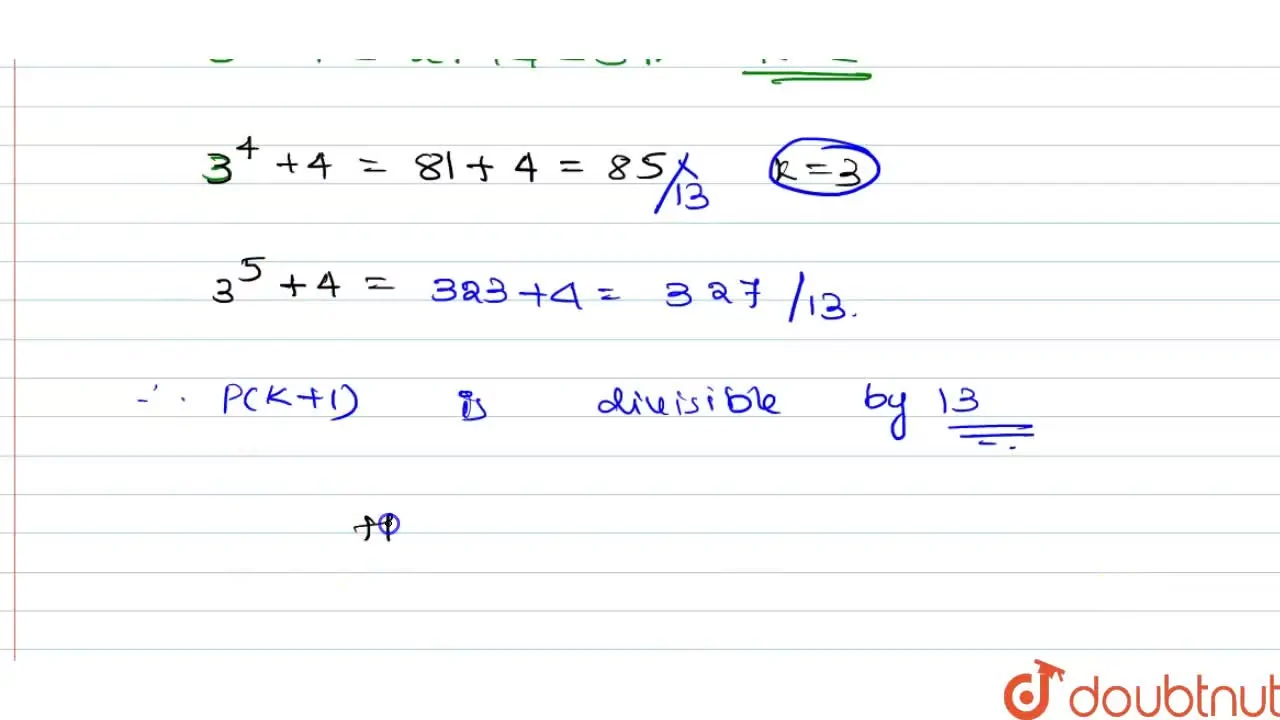 3^4 + 4 = 81 + 4 = 85 /13 k = 3
3^5 + 4 = 323 + 4 = 327 /13.
∴ P(K+1) is divisible by 13
doubtnut